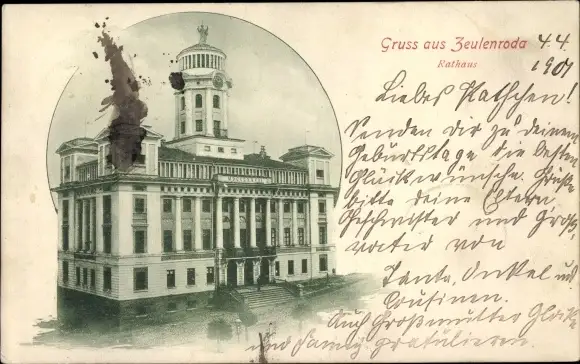 Gruss aus Zeulenroda
Rathaus
4.4.
1901
Liebes Kathchen!
Senden dir zu deinem
Geburtstage die besten
Glückwünsche. Grüße
bitte deine Eltern,
Geschwister und Groß-
vater von
Tante, Onkel und
Cousinen.
Auch Großmutter
und gratulieren.